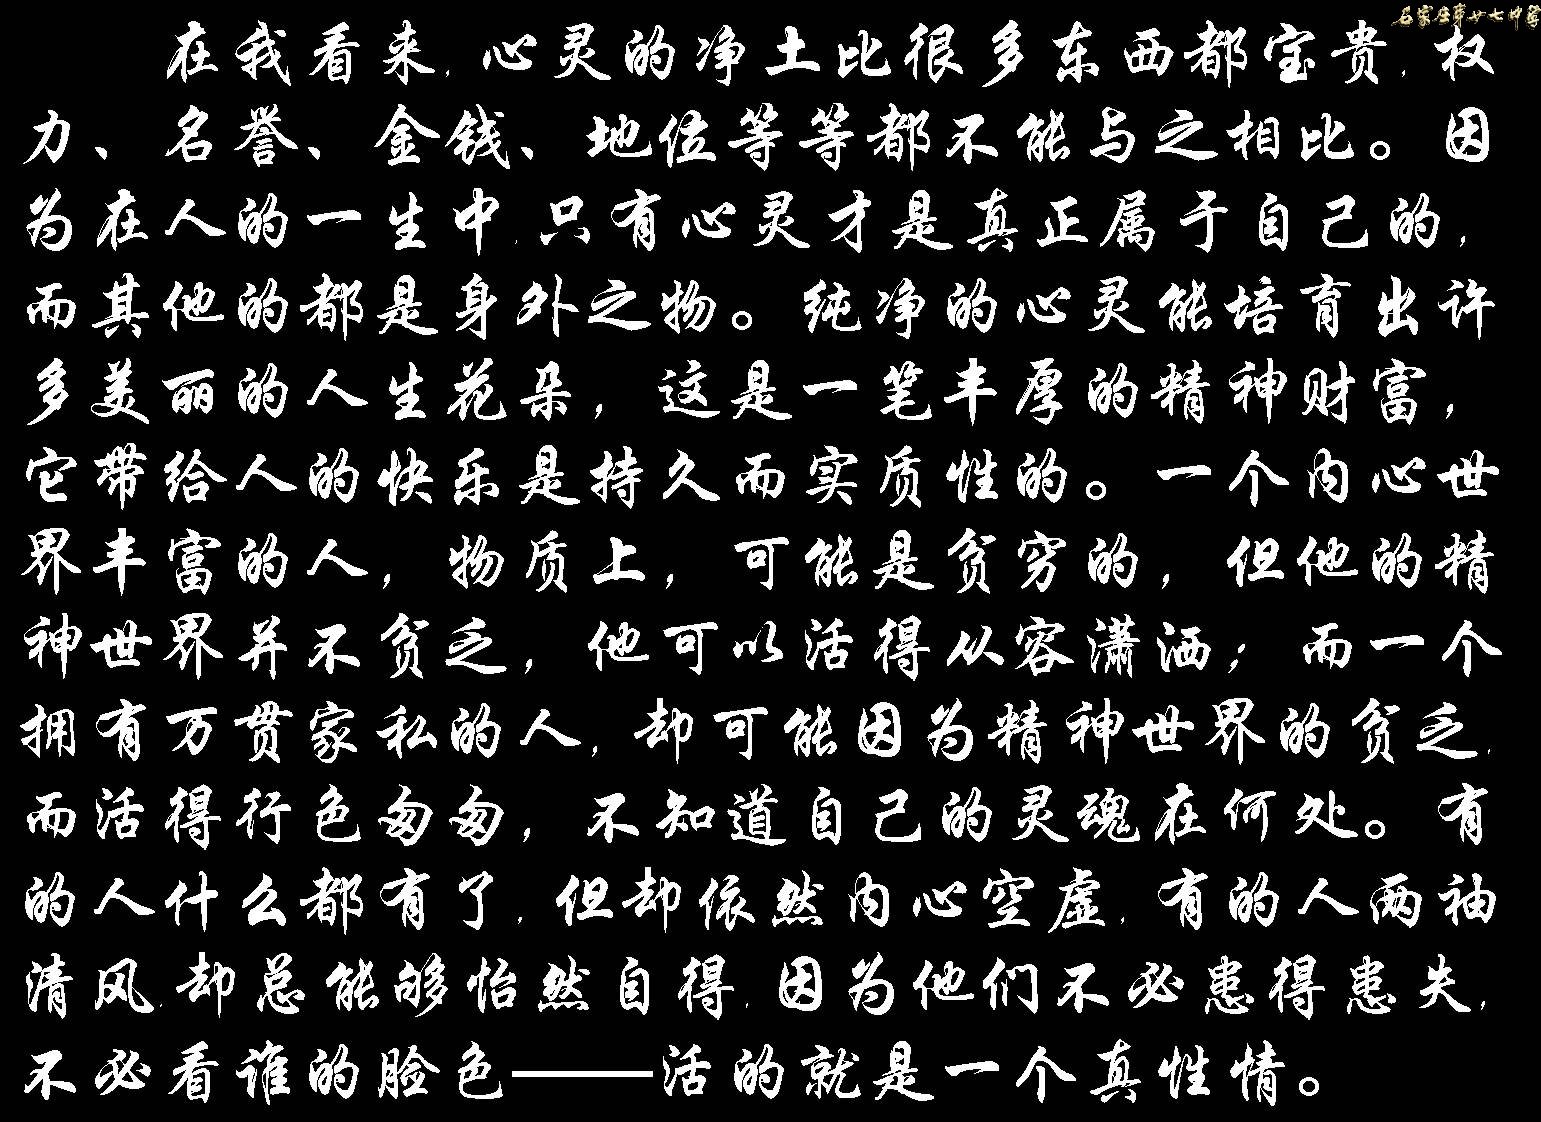 石家庄第廿七中学
在我看来,心灵的净土比很多东西都宝贵,权
力、名誉、金钱、地位等等都不能与之相比。因
为在人的一生中,只有心灵才是真正属于自己的,
而其他的都是身外之物。纯净的心灵能培育出许
多美丽的人生花朵,这是一笔丰厚的精神财富,
它带给人的快乐是持久而实质性的。一个内心世
界丰富的人,物质上,可能是贫穷的,但他的精
神世界并不贫乏,他可以活得从容潇洒;而一个
拥有万贯家私的人,却可能因为精神世界的贫乏,
而活得行色匆匆,不知道自己的灵魂在何处。有
的人什么都有了,但却依然内心空虚,有的人两袖
清风,却总能够怡然自得,因为他们不必患得患失,
不必看谁的脸色——活的就是一个真性情。